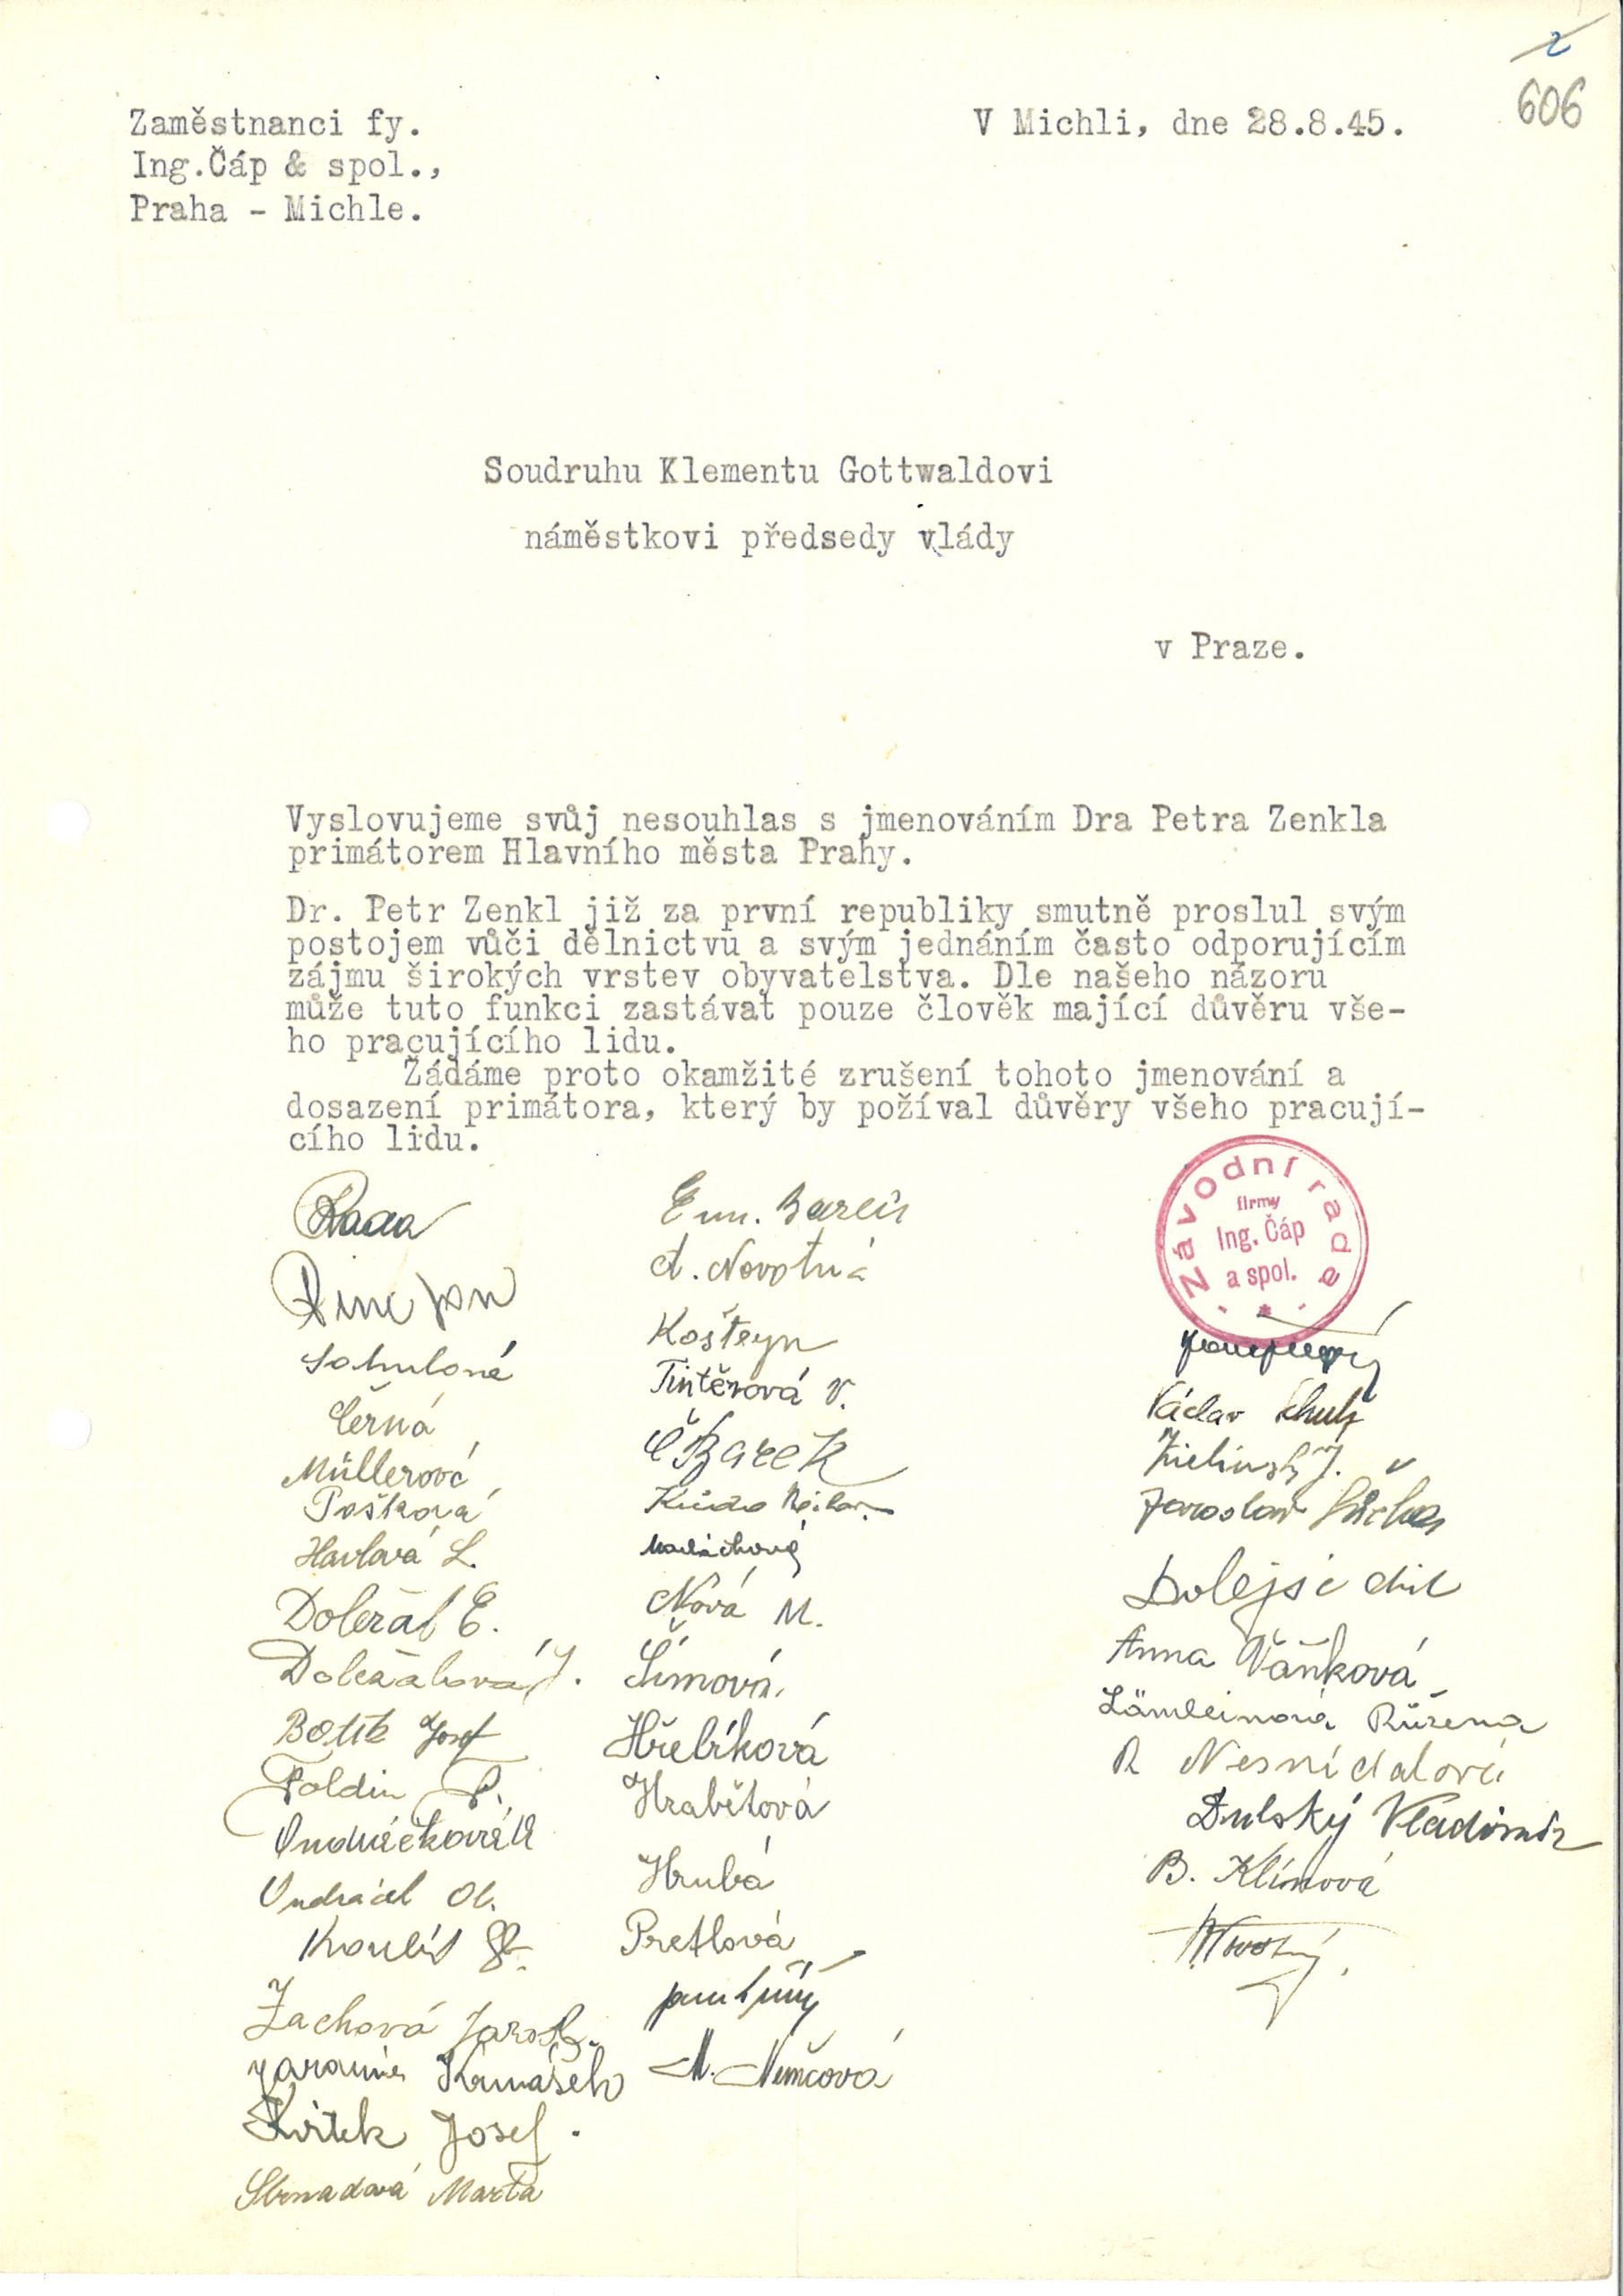 2
606
Zaměstnanci fy.
Ing.Čáp & spol.,
Praha - Michle.
V Michli, dne 28.8.45.
Soudruhu Klementu Gottwaldovi
náměstkovi předsedy vlády
v Praze.
Vyslovujeme svůj nesouhlas s jmenováním Dra Petra Zenkla
primátorem Hlavního města Prahy.
Dr. Petr Zenkl již za první republiky smutně proslul svým
postojem vůči dělnictvu a svým jednáním často odporujícím
zájmu širokých vrstev obyvatelstva. Dle našeho názoru
může tuto funkci zastávat pouze člověk mající důvěru vše-
ho pracujícího lidu.
Žádáme proto okamžité zrušení tohoto jmenování a
dosazení primátora, který by požíval důvěry všeho pracují-
cího lidu.
Závodní rada
firmy
Ing. Čáp
a spol.
Jan
Černá
Müllerová
Pošková
Havlová L.
Doležal E.
Doležalová J.
Josef
Foldin F.
Ondráčková
Ondráček Ol.
Zachová Jarosl.
Kvítek Josef.
Strnadová Marta
Em.
A. Novotná
Koštejn
Tintěrová V.
Nová M.
Šímová
Hřebíková
Hrabětová
Hrubá
Pretlová
M. Němcová
Václav
Zielinski J.
Jaroslav
Dolejší
Anna Váňková
Lämleinová Růžena
R Nesnídalová
Dulský Vladimír
B. Klímová
Novotný